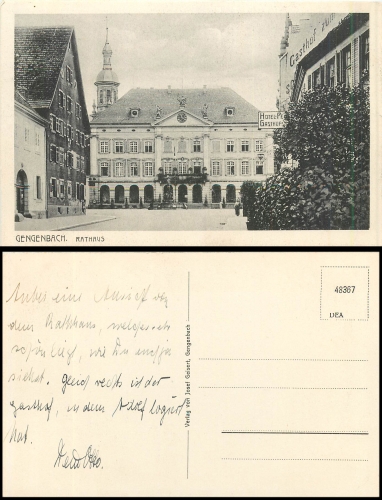 Gasthof zum
HOTEL
GASTHOF
GENGENBACH. RATHAUS
Anbei eine Ansicht von
dem Rathaus, welches sehr
schön liegt, wie Du
siehst. Gleich rechts ist der
Gasthof, in dem Adolf logiert
hat.
Dein Otto.
Verlag von Josef Geisert, Gengenbach
48367
DEA